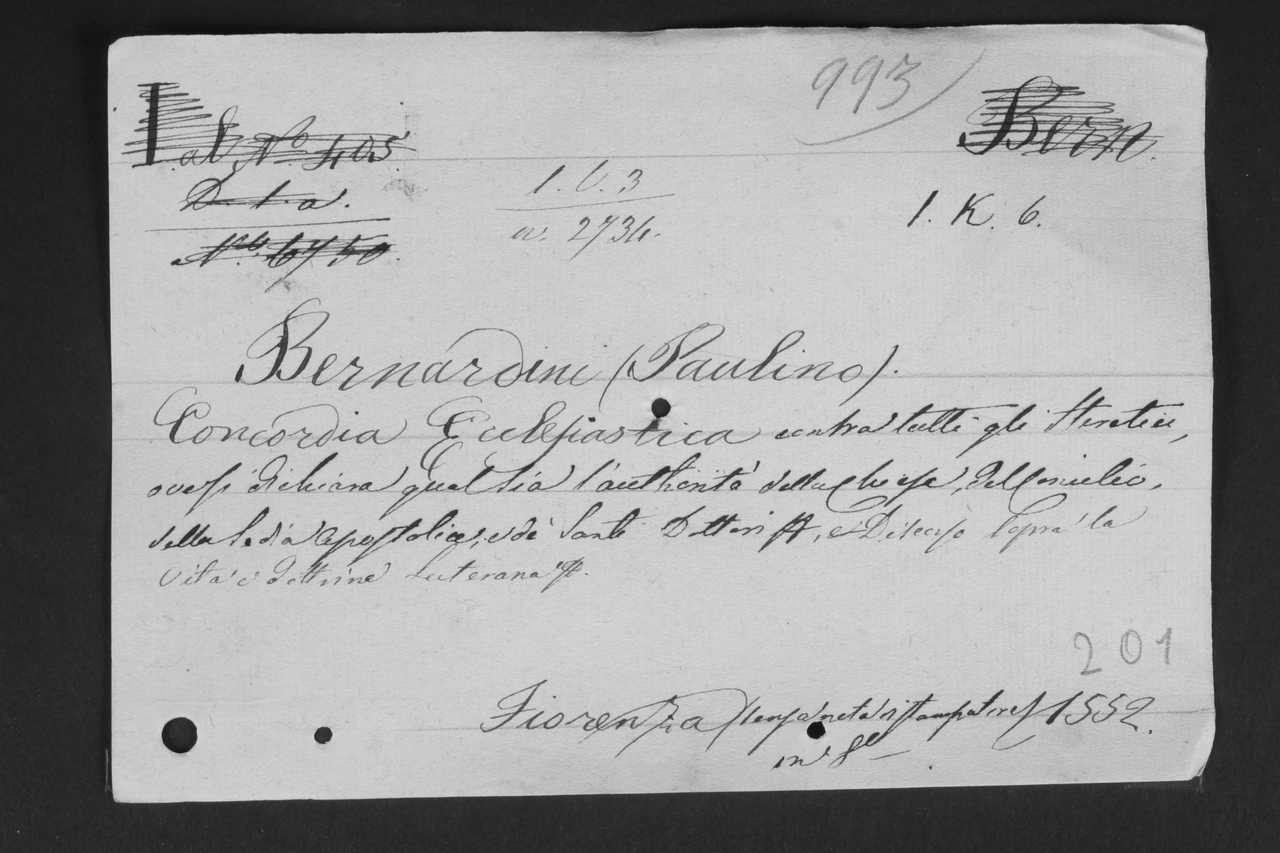 993
Bern.
Tab. No 405.
D. t. a.
No. 6750.
1. V. 3
a. 2734.
1. K. 6.
Bernardini (Paulino).
Concordia Ecclesiastica contra tutti gli Heretici,
ove si dichiara qual sia l'authorità della chiesa, del Concilio,
della Sedia Apostolica, e de' Santi Dottori, e Discorso sopra la
vita e dottrine Luterana
201
Fiorenza (senza nota di stampatore) 1552.
in 8º